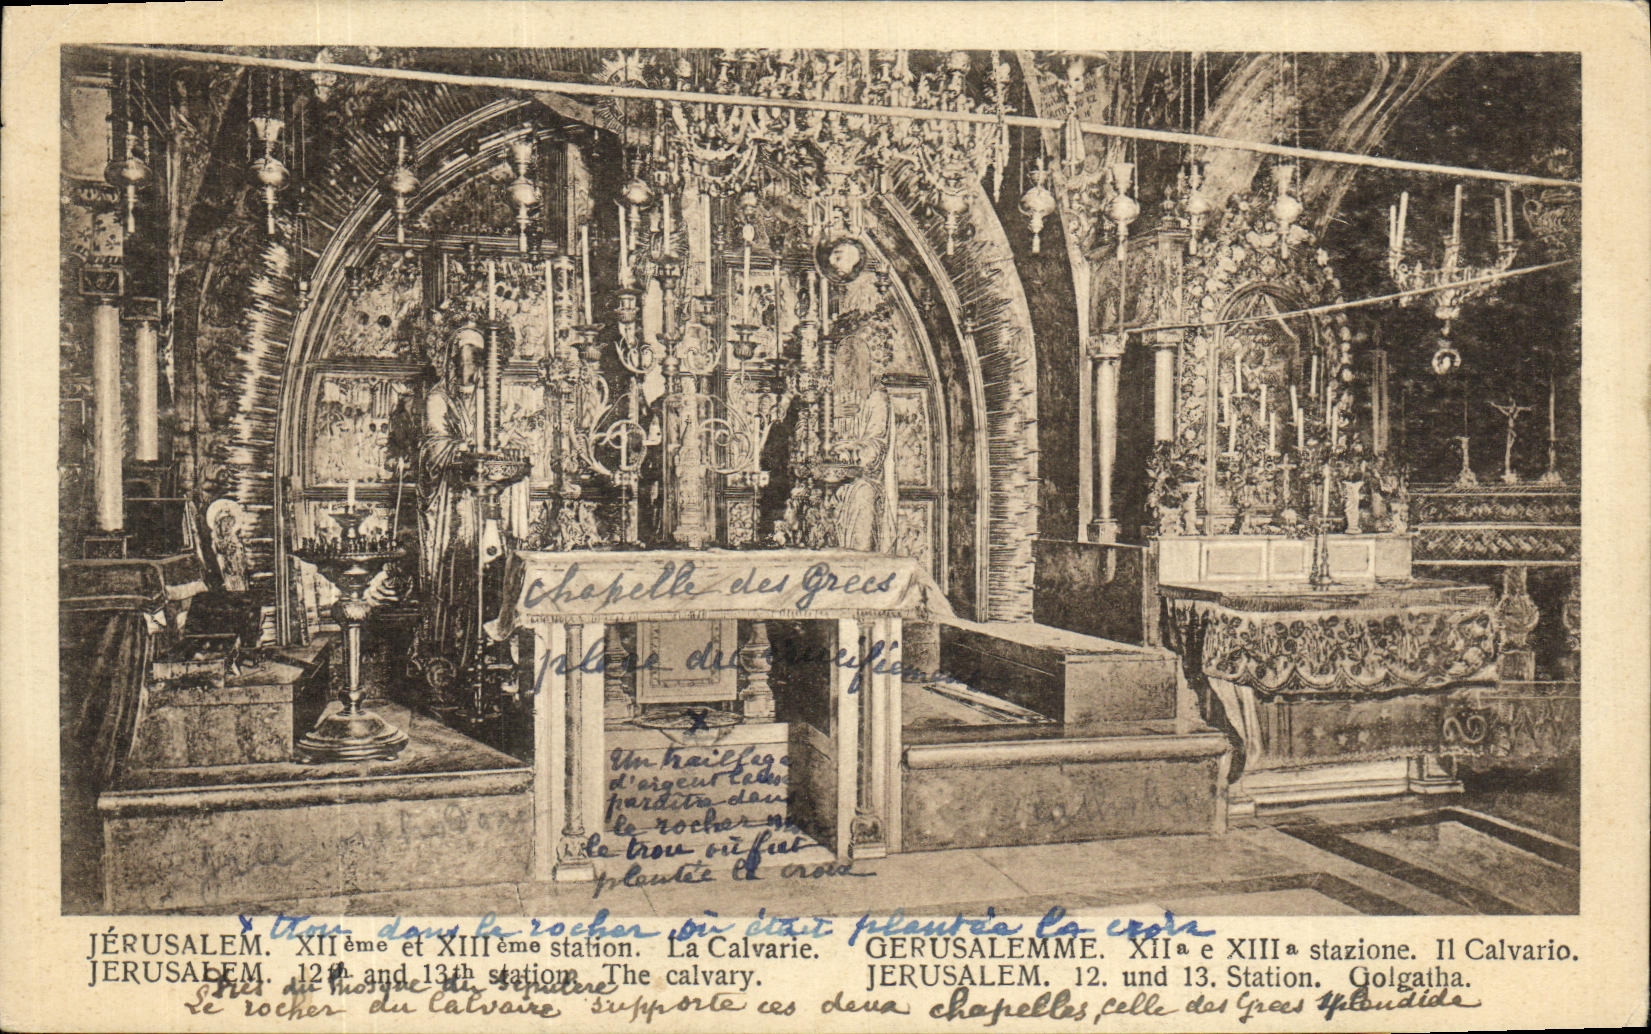 chapelle des Grecs
place du crucifiement
x
Un treillage
d'argent laisse
paraître dans
le rocher
le trou où fut
plantée la croix
x trou dans le rocher où était plantée la croix
JÉRUSALEM. XIIème et XIIIème station. La Calvarie. GERUSALEMME. XIIa e XIIIa stazione. Il Calvario.
JERUSALEM. 12th and 13th station. The calvary. JERUSALEM. 12. und 13. Station. Golgatha.
Près du du
Le rocher du Calvaire supporte ces deux chapelles, celle des Grecs splendide